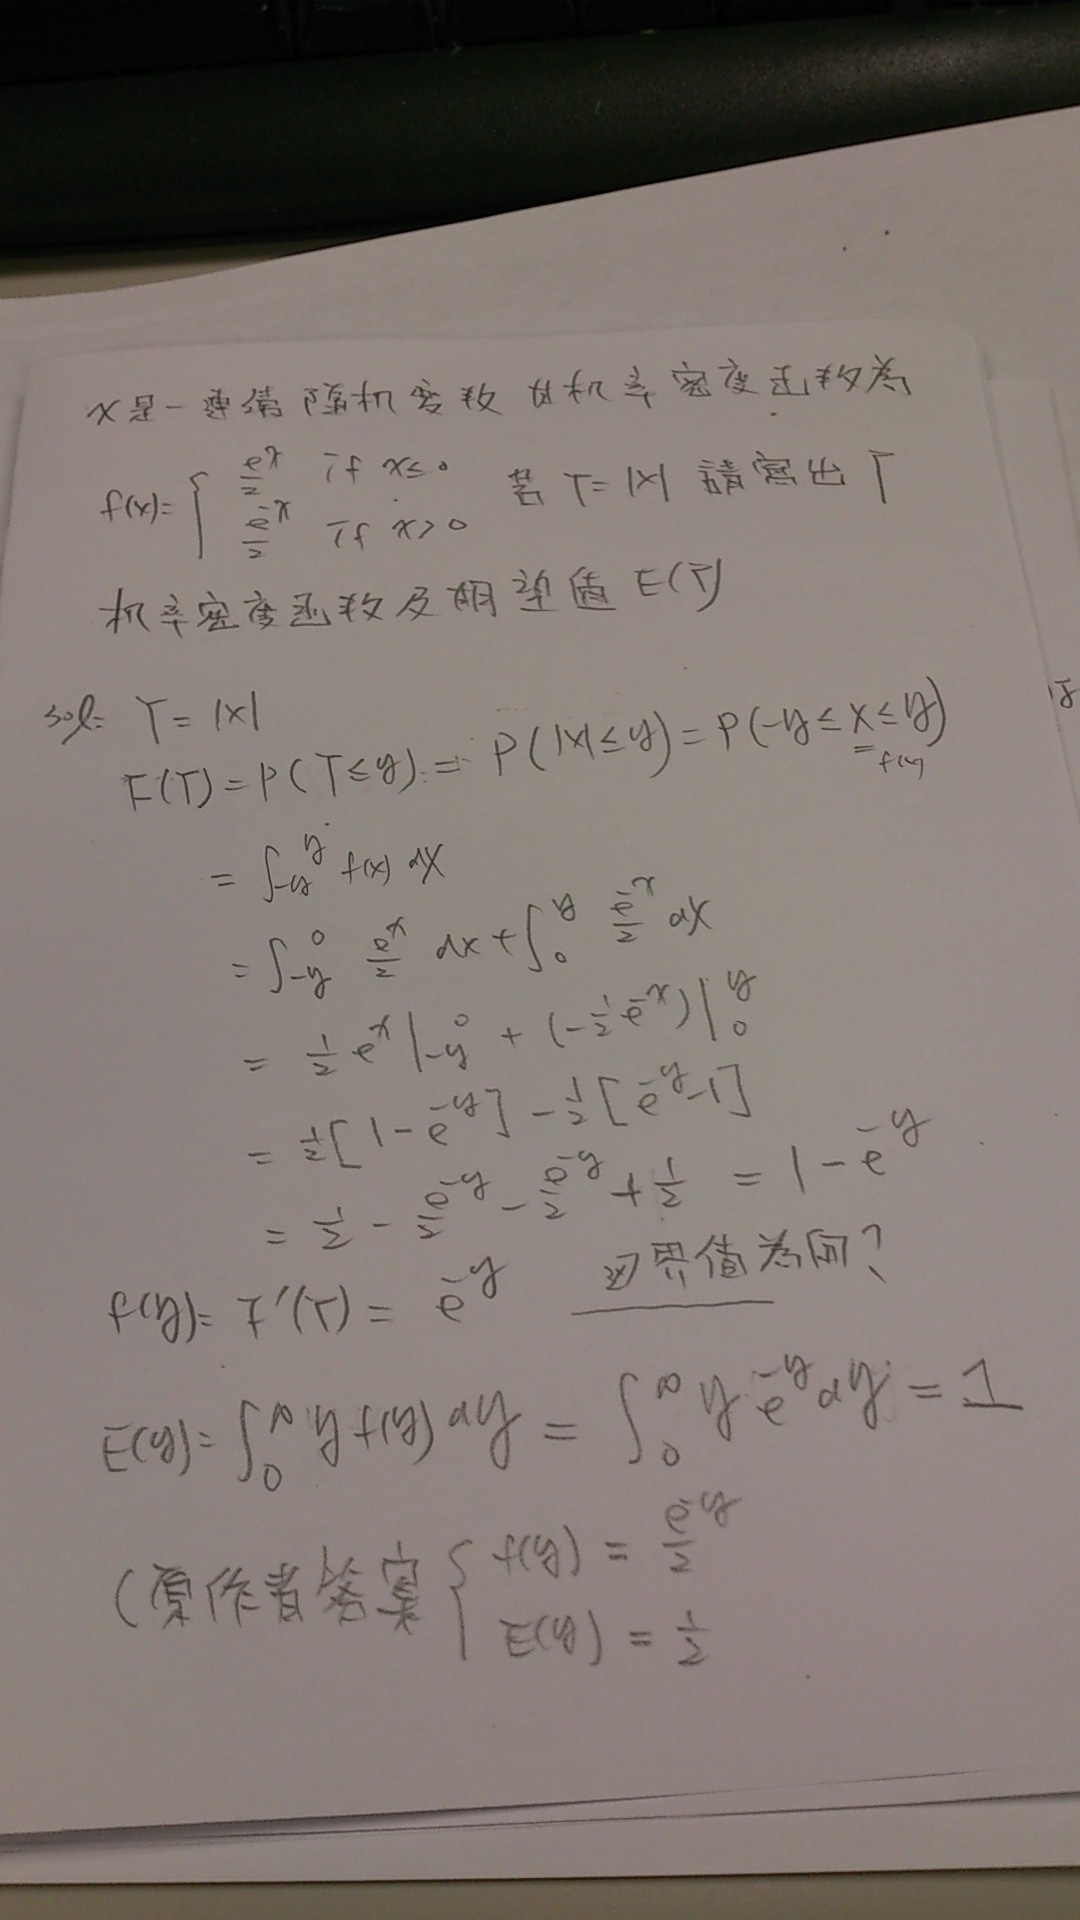 x是一連續隨機变数 其机率密度函数為
f(x)= { e^x/2 if x≤0 若 T=|x| 請寫出 T
e^-x/2 if x>0
机率密度函数及期望值 E(T)
sol= T=|x|
F(T)=P(T≤y)=P(|x|≤y)=P(-y≤x≤y)
= ∫_-y^y f(x) dx
= ∫_-y^0 e^x/2 dx + ∫_0^y e^-x/2 dx
= 1/2 e^x |_-y^0 + (-1/2 e^-x)|_0^y
= 1/2[1-e^-y] - 1/2[e^-y-1]
= 1/2 - e^-y/2 - e^-y/2 + 1/2 = 1-e^-y
f(y)= F'(T) = e^-y 边界值為何?
E(y)= ∫_0^∞ y f(y) dy = ∫_0^∞ y e^-y dy = 1
(原作者答案 { f(y) = e^-y/2
E(y) = 1/2